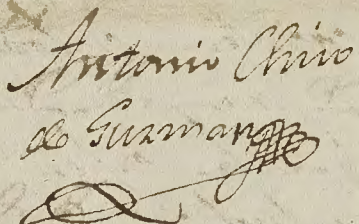 Antonio Chino
de Guzman